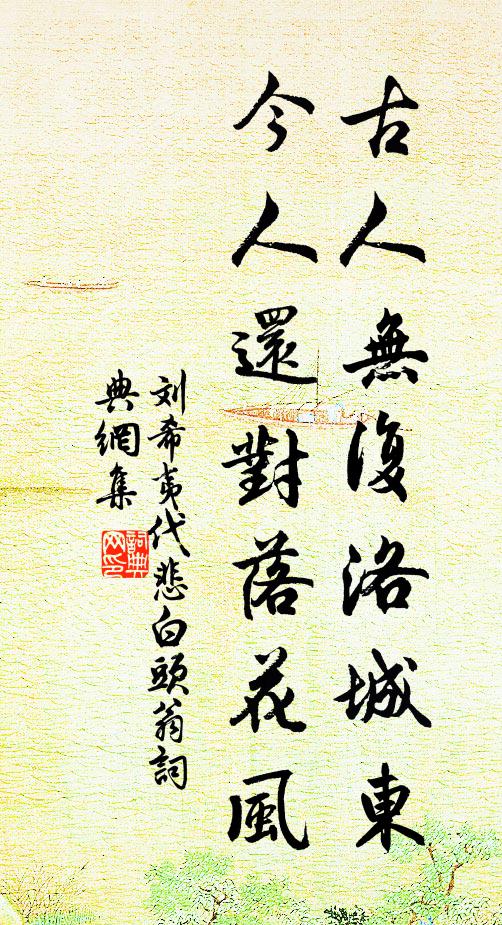 古人無復洛城東
今人還對落花風
刘希夷代悲白頭翁詞
典網集
詞典
网印